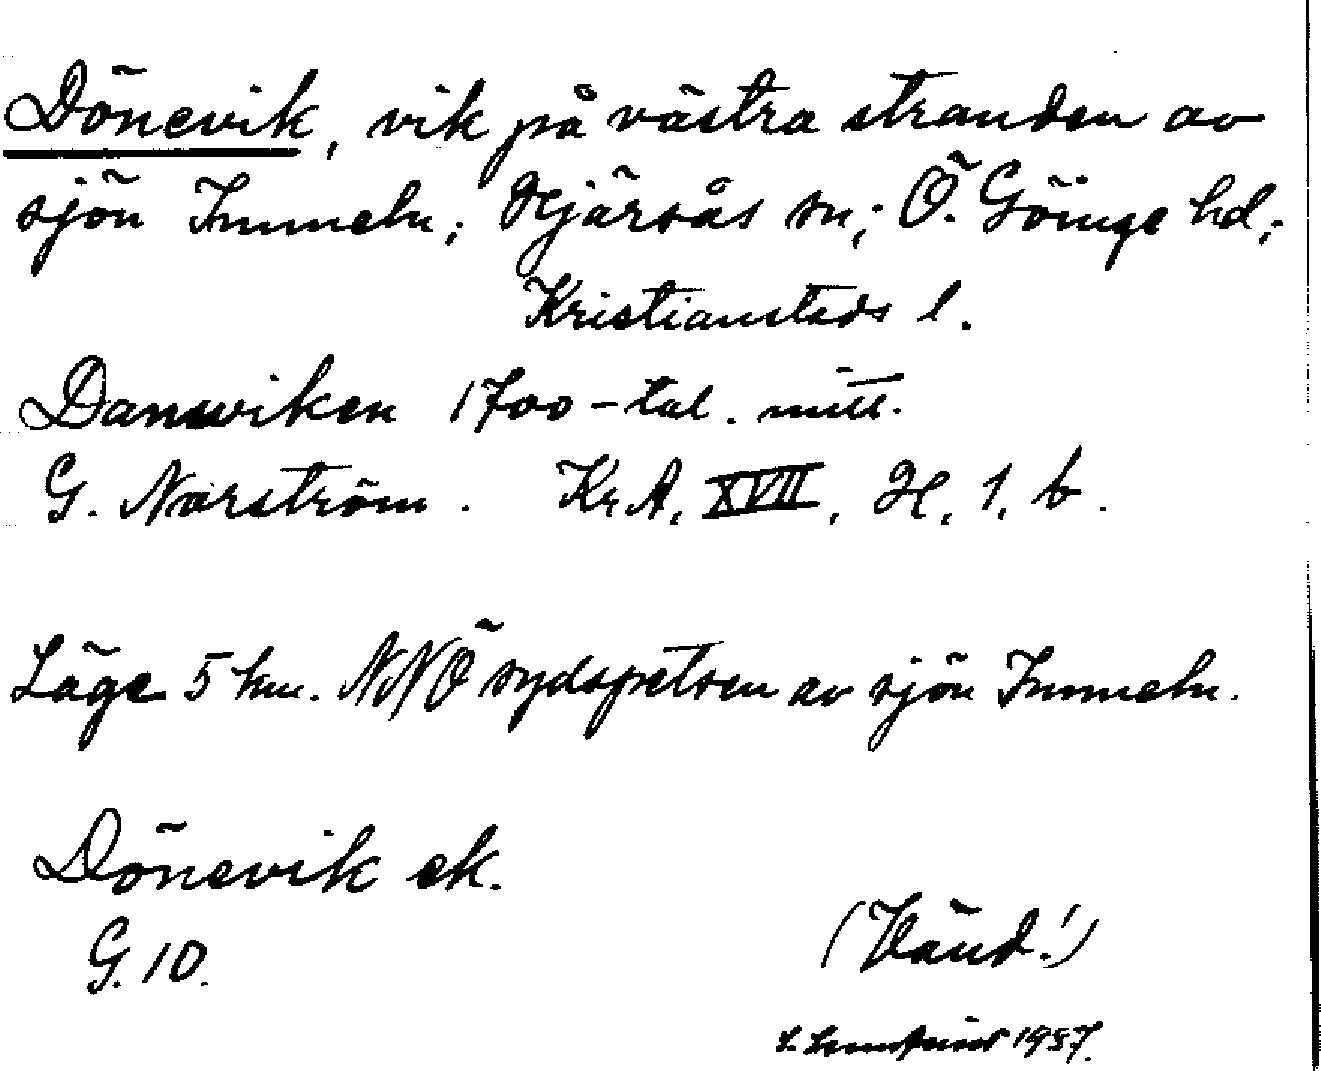 Dönevik, vik på västra stranden av
sjön Immeln; Hjärsås sn; Ö. Göinge hd;
Kristianstads l.
Danwiken 1700-tal. mitt.
G. Norström. Kr.A, XVII, H, 1, b.
Läge 5 km. NNÖ sydspetsen av sjön Immeln.
Dönevik ek.
G. 10.
(Vänd!)
1957.